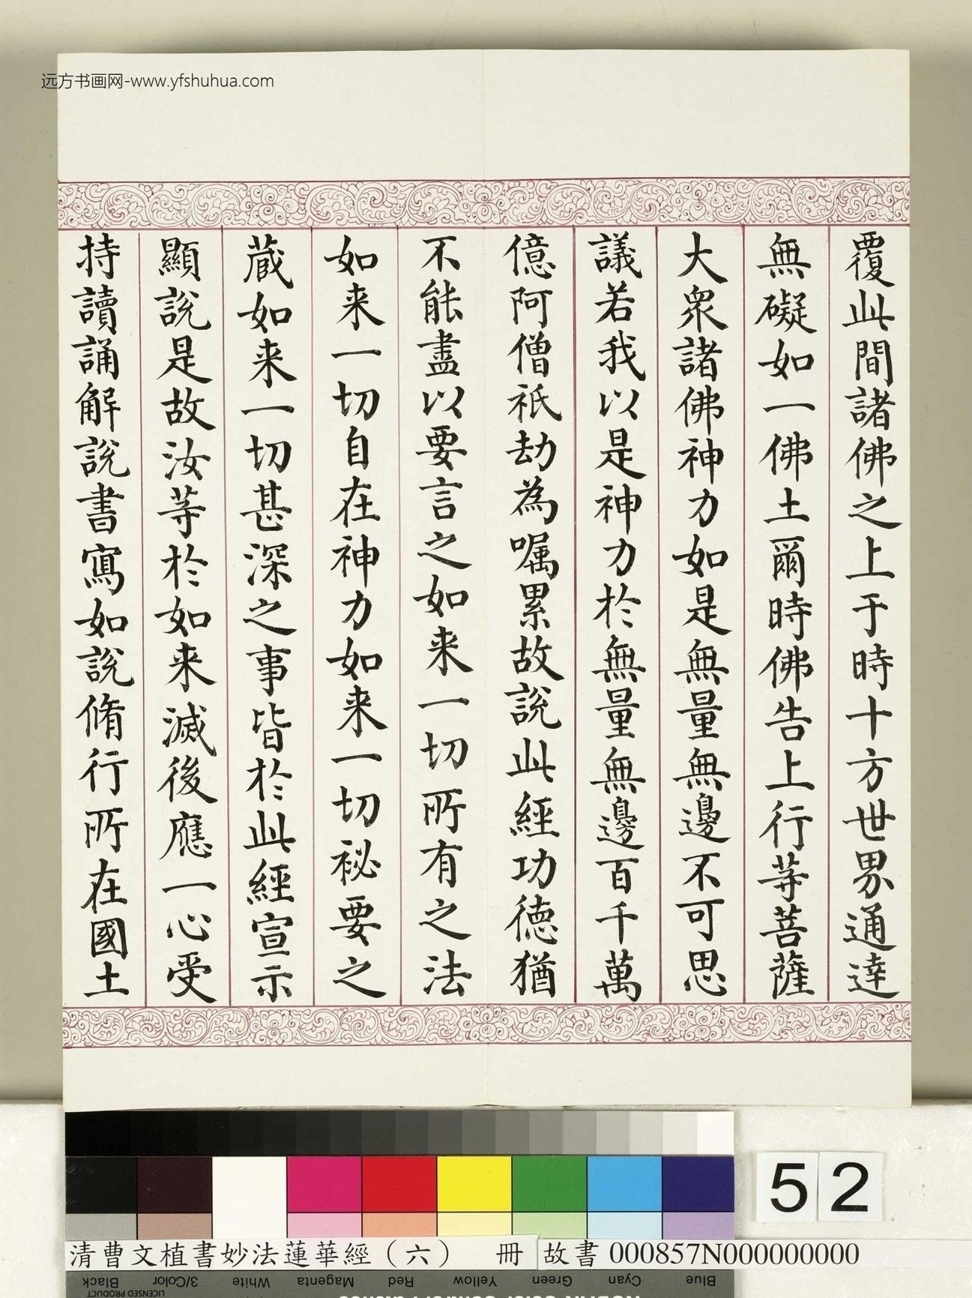 远方书画网-www.yfshuhua.com
覆此間諸佛之上于時十方世界通達
無礙如一佛土爾時佛告上行等菩薩
大眾諸佛神力如是無量無邊不可思
議若我以是神力於無量無邊百千萬
億阿僧祇劫為囑累故說此經功德猶
不能盡以要言之如來一切所有之法
如來一切自在神力如來一切祕要之
蔵如來一切甚深之事皆於此經宣示
顯說是故汝等於如來滅後應一心受
持讀誦解說書寫如說脩行所在國土
52
清曹文植書妙法蓮華經(六) 冊 故書 000857N000000000
Black 3/Color White Magenta Red Yellow Green Cyan Blue
LICENSED PRODUCT